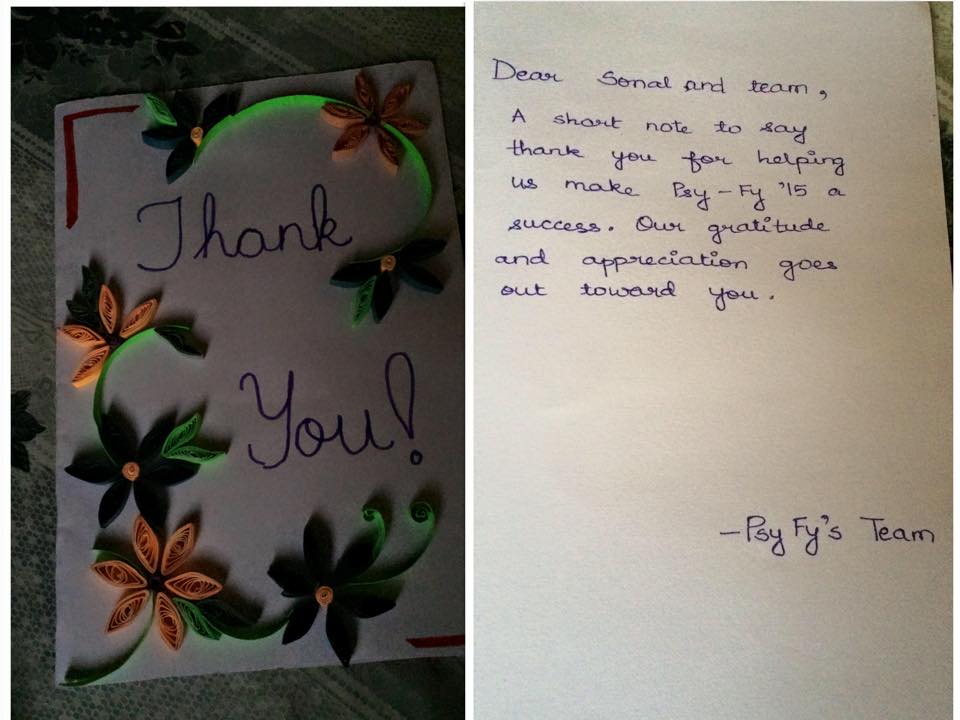 Thank
You!
Dear Sonal and team,
A short note to say
thank you for helping
us make Psy-Fy '15 a
success. Our gratitude
and appreciation goes
out toward you.
-Psy Fy's Team